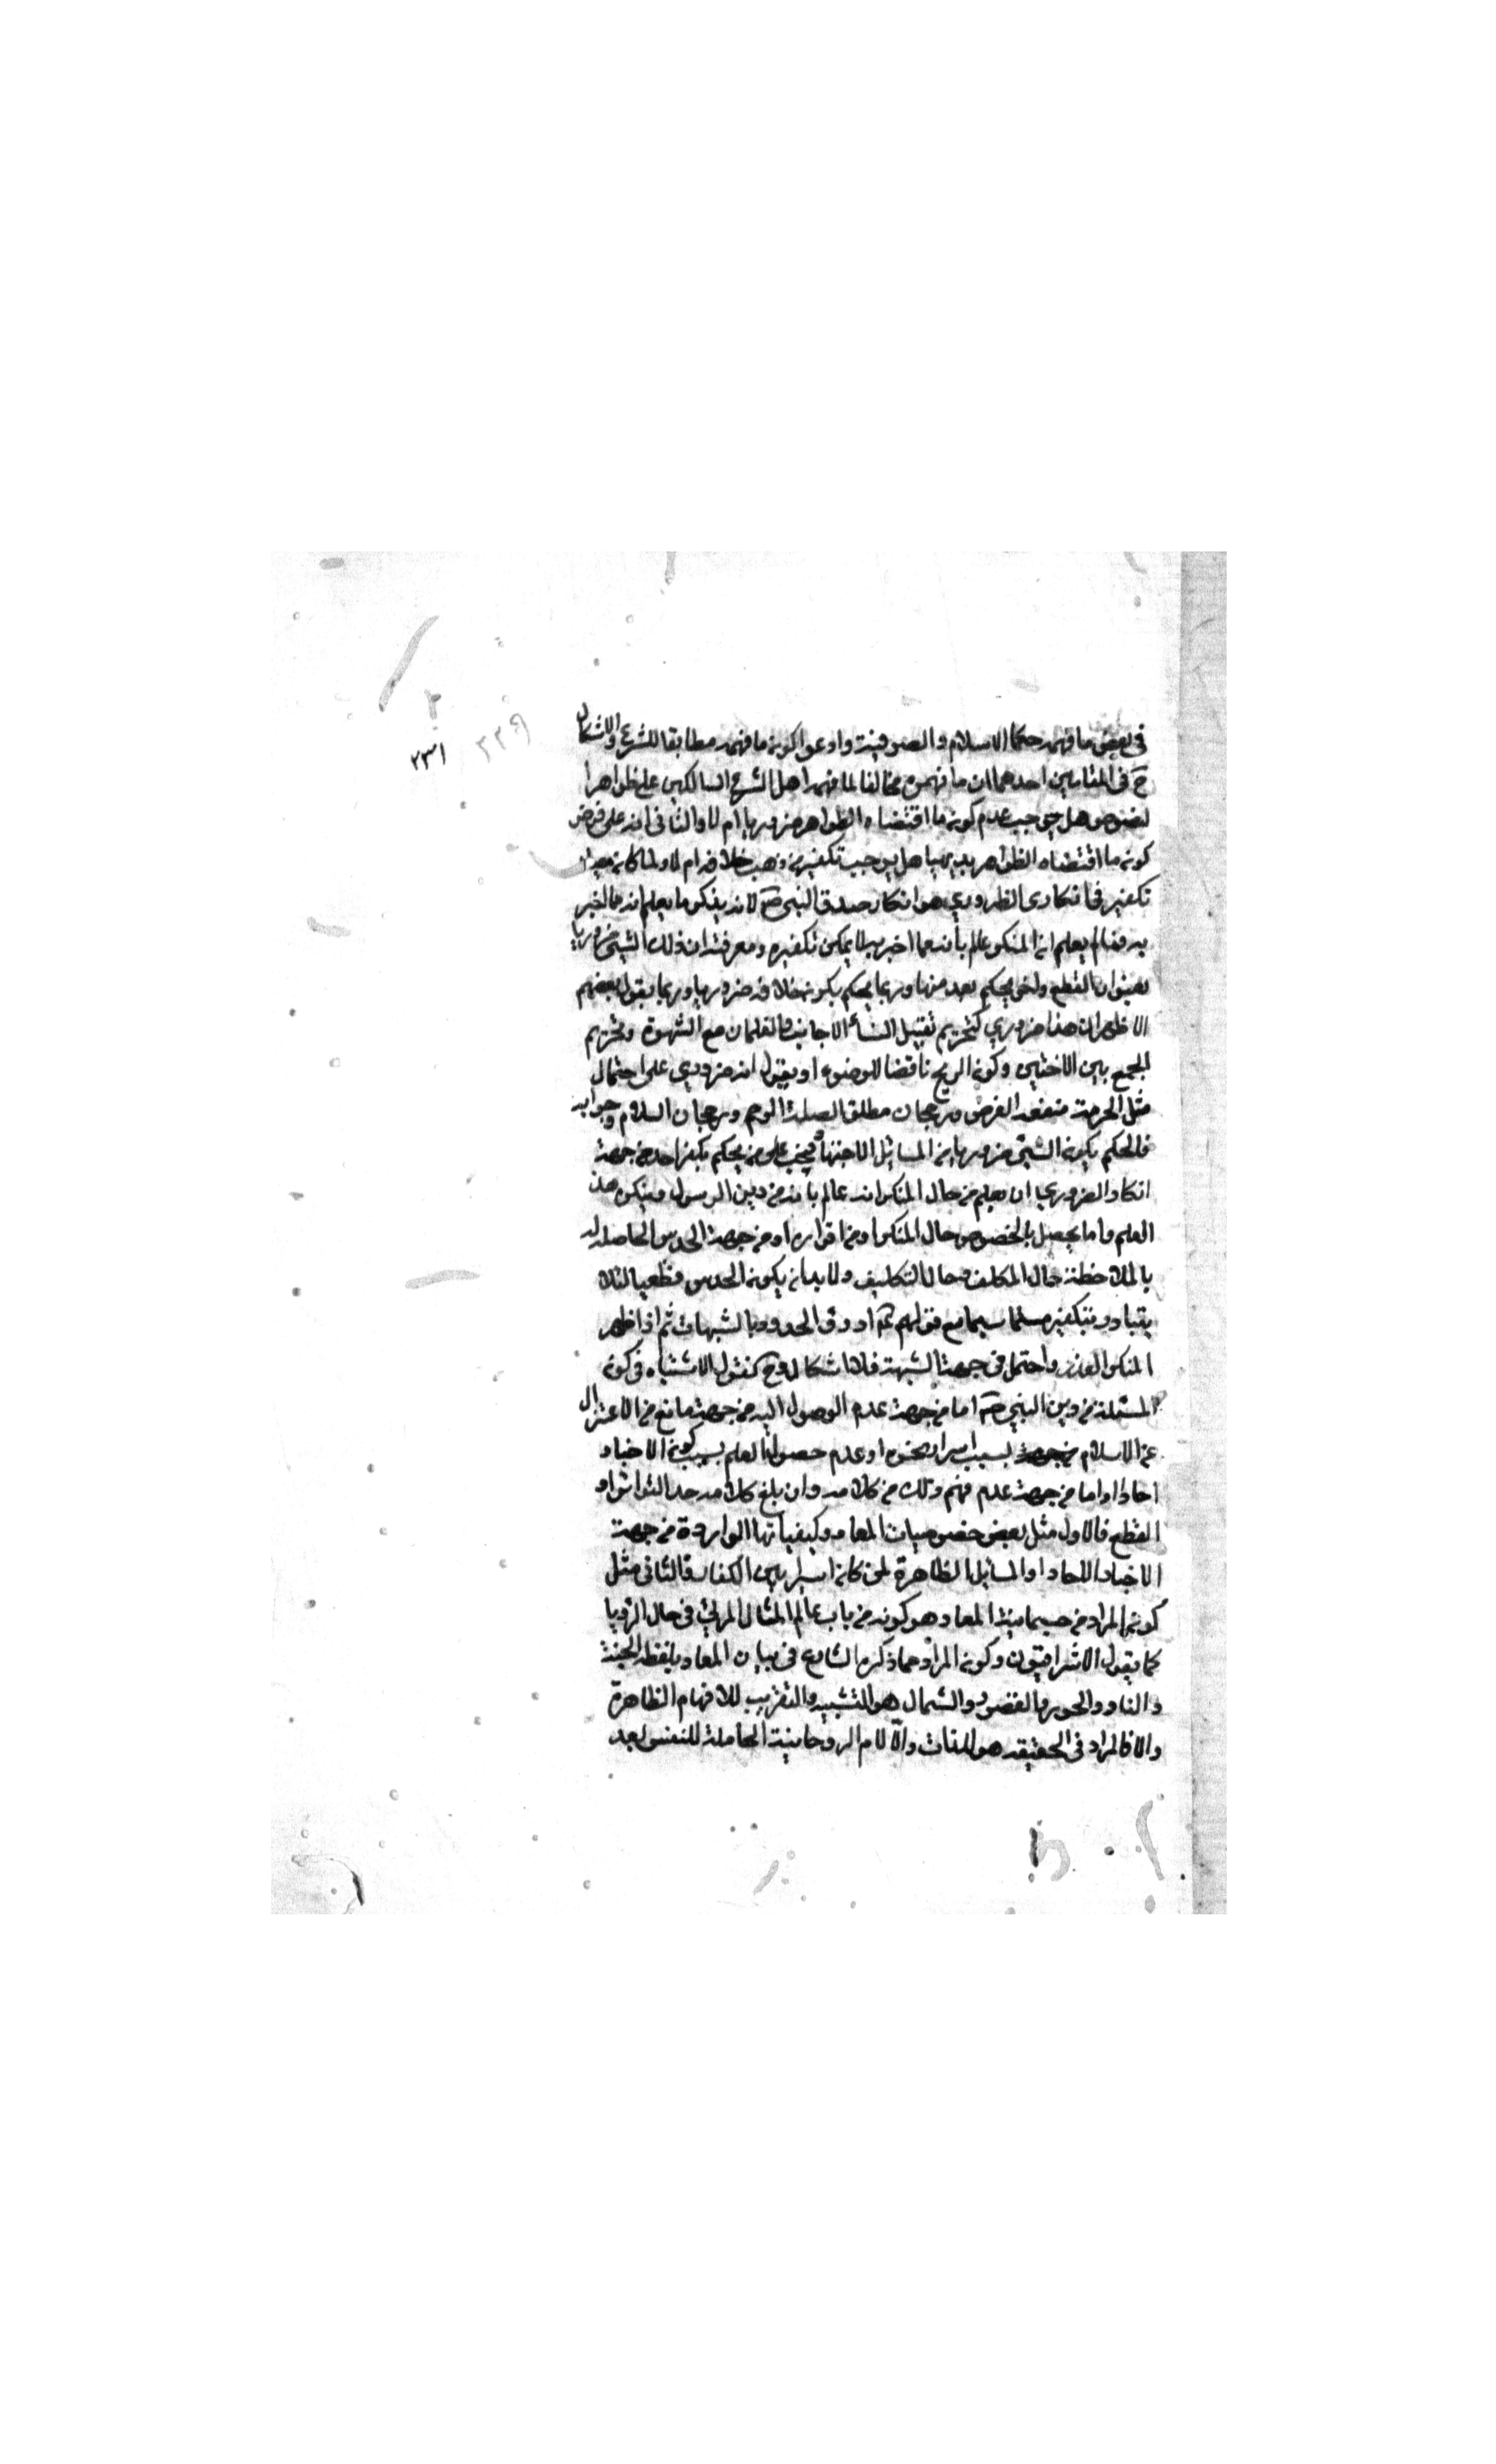 ٢
٢٢٩
٢٣١
في بعض ما فهمه حكما الاسلام والصوفية وادعوا كونه ما فهمه مطابقا للشرع والاشكال
ح في المقامين احدهما ان ما فهموه مخالفا لما فهمه اهل الشرع السالكين على ظواهرا
لنصوص هل يوجب عدم كونه ما اقتضاه الظواهر ضروريا ام لا والثاني انه على فرض
كونه ما اقتضاه الظواهر بديهيا هل يوجب تكفير من ذهب خلافه ام لا ولما كان معيار
تكفير في انكار الضروري هو انكار صدق النبي ص لانه ينكر ما يعلم انه مما اخبر
به فما لم يعلم ان المنكر عالم بانه مما اخبر به لا يمكن تكفيره ومعرفة ان ذلك الشيئ ضروريا
بعنوان القطع ولغو يحكم بعد منها وربما يحكم بكونه خلافه ضروريا وربما يقول بعضهم
الاظهر ان هذا ضروري كتحريم تقبيل النساء الاجانب والغلمان مع الشهوة وتحريم
الجمع بين الاختين وكونه الريح ناقضا للوضوء او يقول انه ضروري على احتمال
مثل الحرمة منفعة القرض ورجحان مطلق الصلة الرحم ورجحان السلام وجوابه
فالحكم بكونه الشيئ ضروريا من المسائل الاجتهاد فيجب على من يحكم بكفر احد من جهة
انكار الضروري ان يعلم من حال المنكر انه عالم بانه من دين الرسول وينكره هذا
العلم واما يحصل بالخصوص حال المنكر او من اقراره او من جهة الحدس الحاصلة له
بالملاحظة حال المكلف وحال التكليف ولا بد ان يكونه الحدس قطعيا لئلا
يتبادر بتكفير مسلما سيما مع قولهم ع ادرؤ الحدود بالشبهات ثم اذا ظهر
المنكر العذر واحتمل في جهة الشبهة فلا اشكال وح كنقول الاشتباه في كونه
المسئلة من دين النبي ص اما من جهة عدم الوصول اليه من جهة مانع من الاعتزال
عن الاسلام من جهة بسبب اسر او نحوه او عدم حصول العلم بسبب كونه الاخبار
احادا واما من جهة عدم فهم ذلك من كلامه وان بلغ كلامه حد التواتر او
القطع فالاول مثل بعض خصوصيات المعاد وكيفياتها الواردة من جهة
الاخبار الاحاد او المسائل الظاهرة لمن كانه اسير بين الكفار والثاني مثل
كونه المراد من جسمانية المعاد هو كونه من باب عالم المثال المرئي في حال الرؤيا
كما يقول الاشراقيون وكونه المراد مما ذكره الشارع في بيان المعاد بلفظ الجنة
والنار والحور والقصور والشمال هو التشبيه والتقريب للافهام الظاهرة
والا فالمراد في الحقيقة هو اللذات والآلام الروحانية الحاصلة للنفس بعد